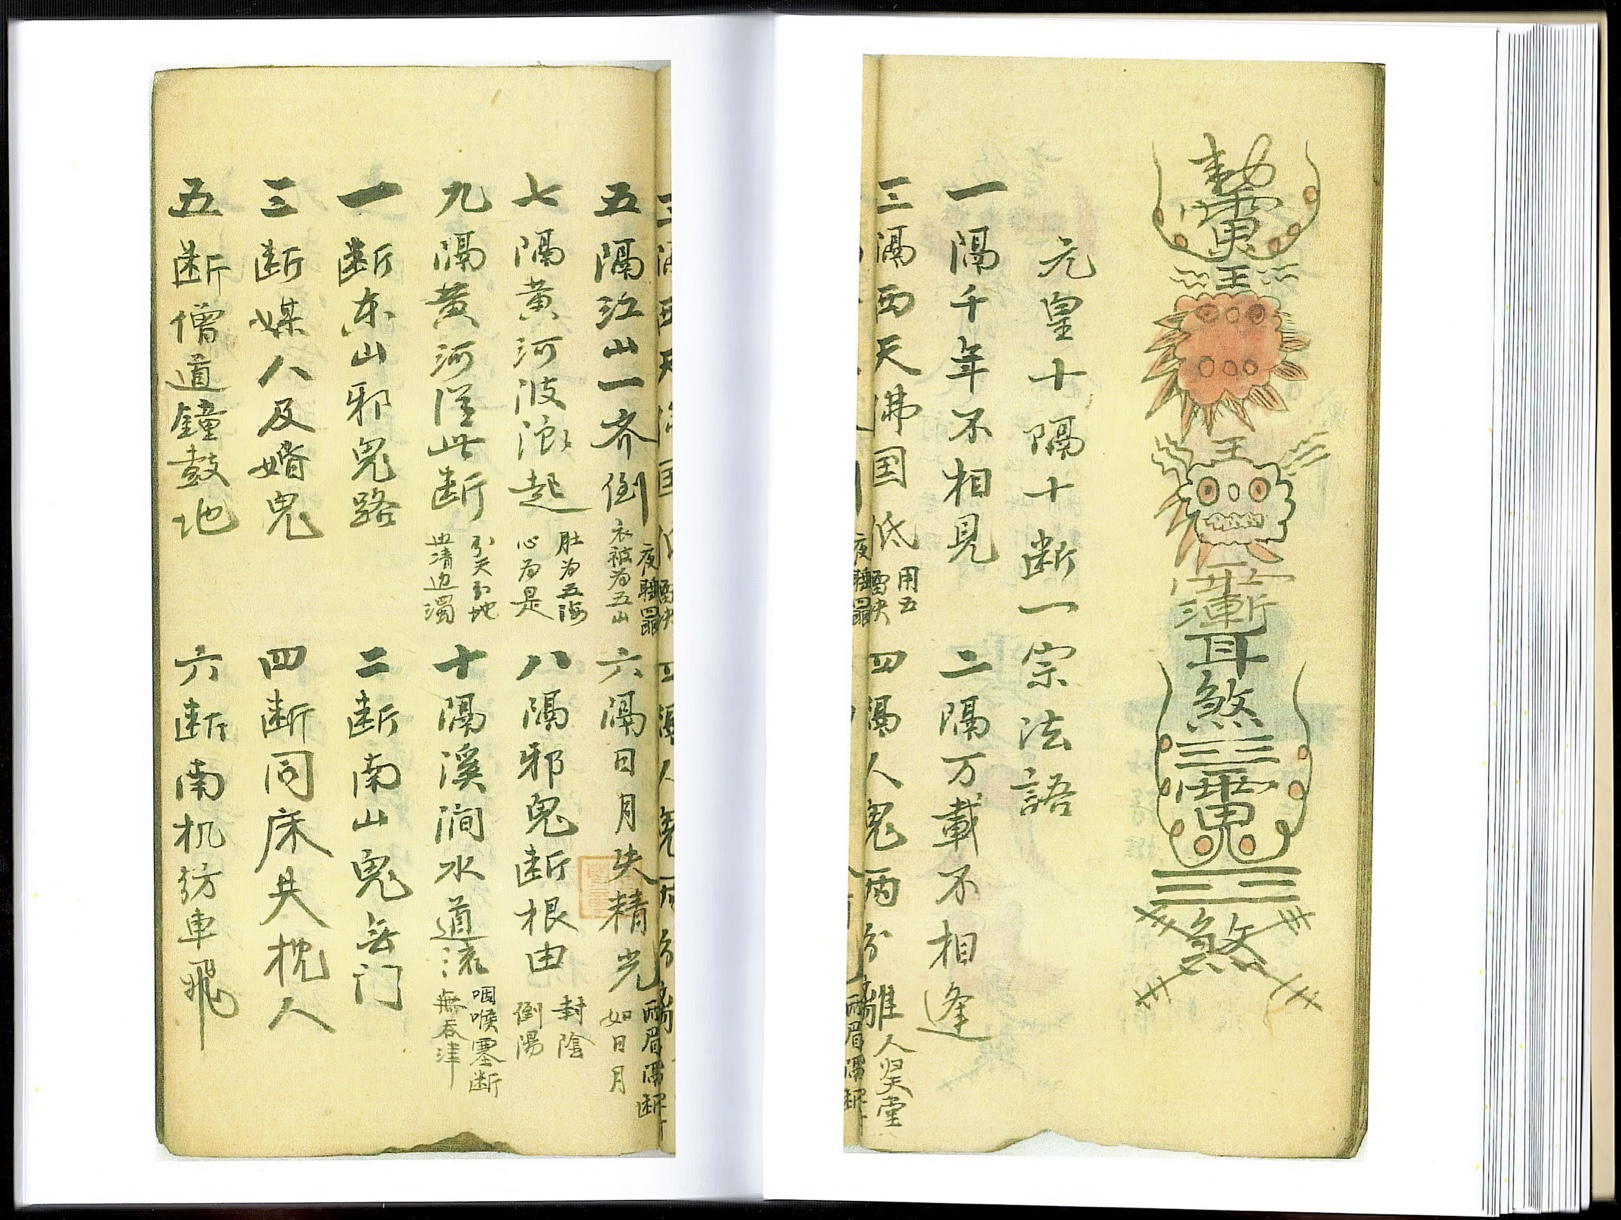 勅
王
王
耳
煞
煞
元皇十隔十断一宗法語
一隔千年不相見 二隔万載不相逢
三隔西天沸国低 用五 四隔人鬼両分離 人归天堂
五隔江山一齐倒 衣被为五山 六隔日月失精光 如日月
七隔黄河波浪起 肚为五海 心为是 八隔邪鬼断根由 封陰 倒陽
九隔黄河從此断 分天分地 血清边濁 十隔溪澗水道流 咽喉塞断 無吞津
一断东山邪鬼路 二断南山鬼无门
三断媒人及婚鬼 四断同床共枕人
五断僧道鐘鼓地 六断南机纺車飛